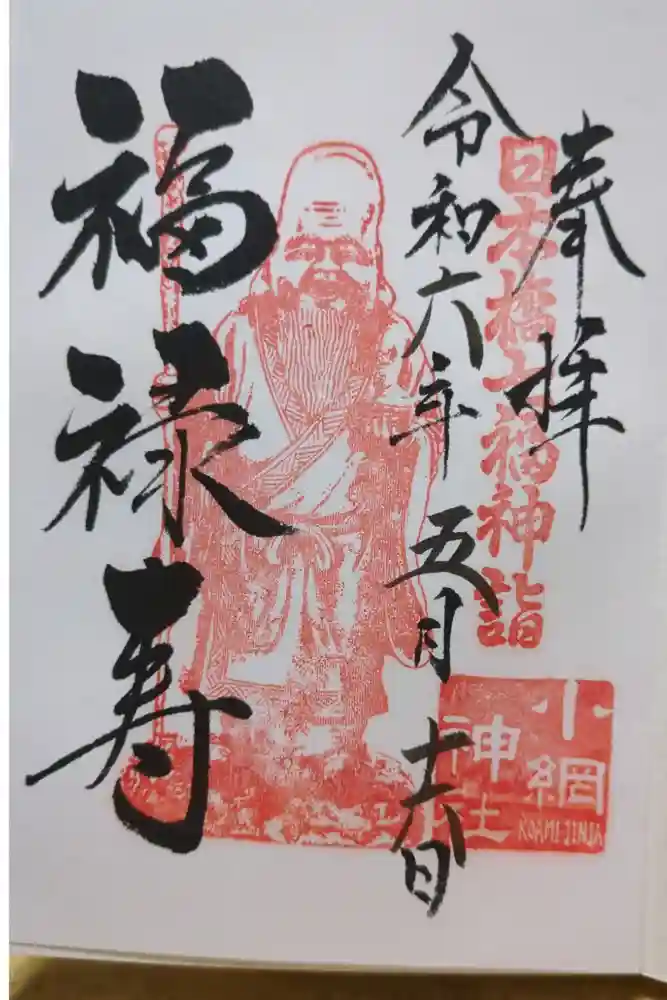 奉拝
日本橋七福神詣
令和六年五月十六日
福禄寿
小網
神社
KOAMI JINJA